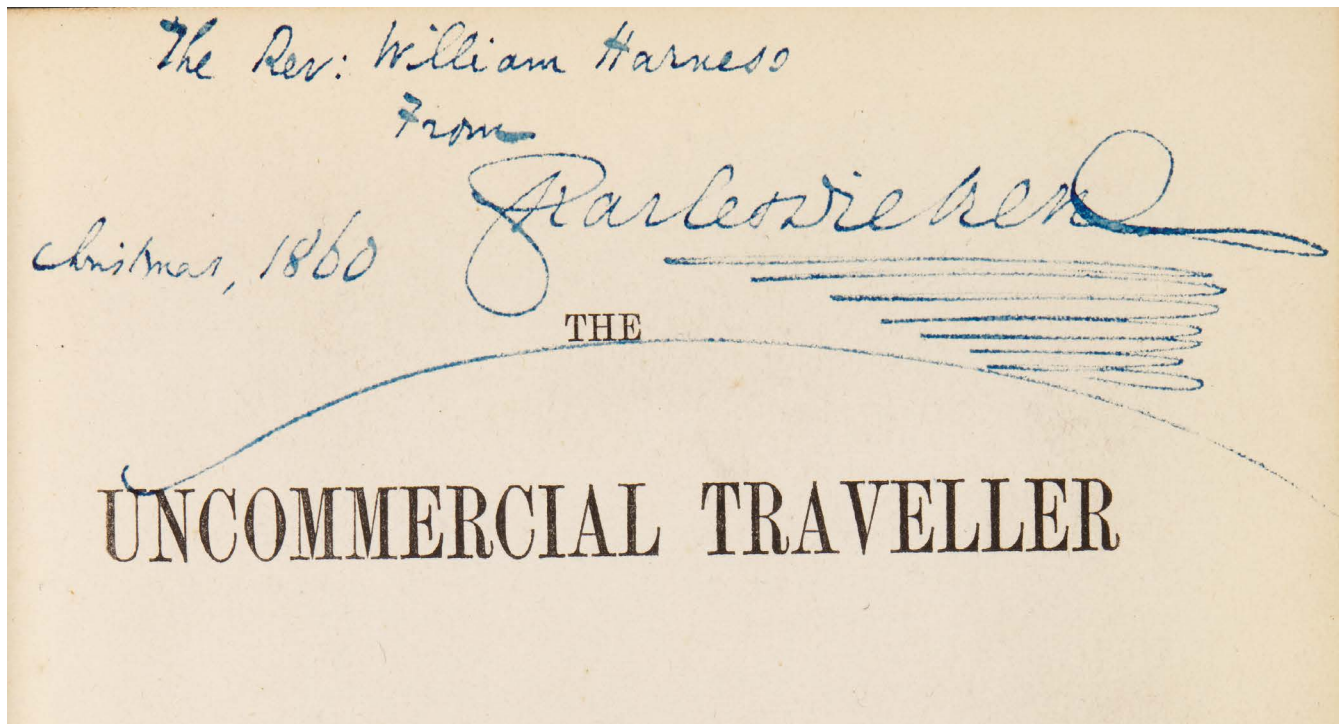 The Rev: William Harness
From
Charles Dickens
Christmas, 1860
THE
UNCOMMERCIAL TRAVELLER